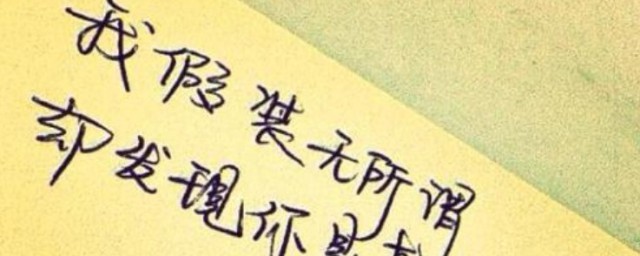 我假装无所谓
却发现你是